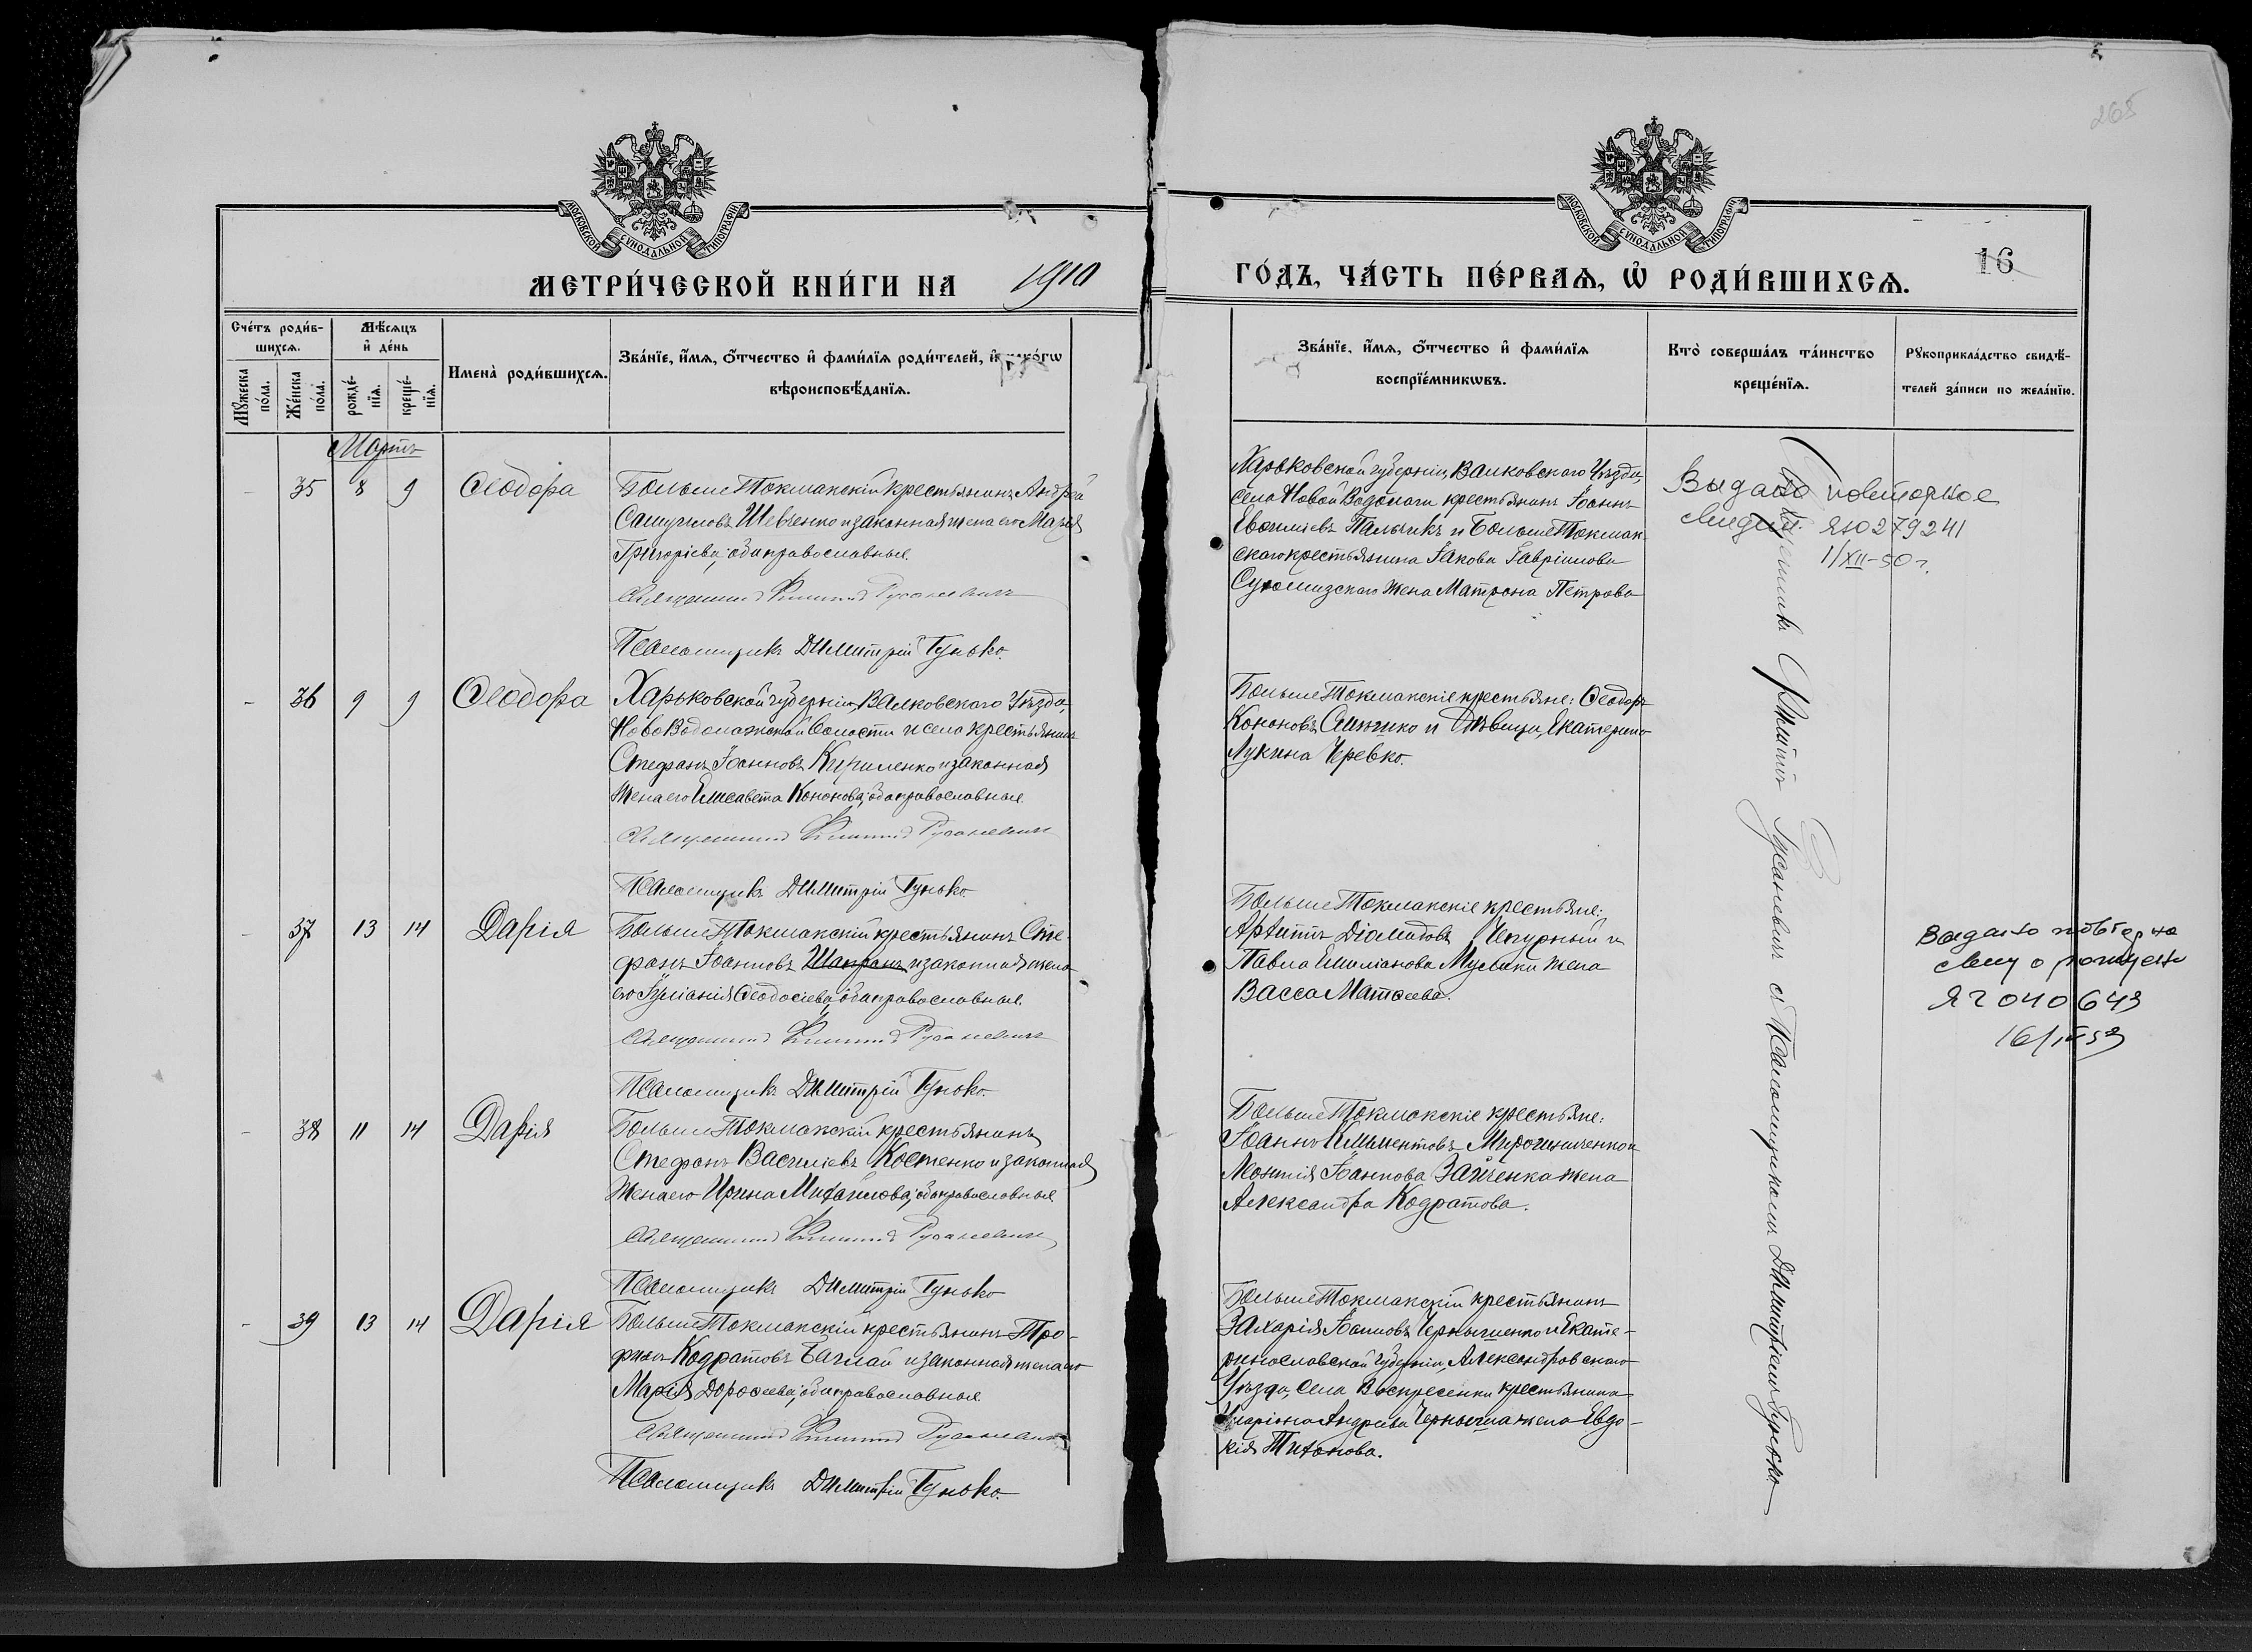 265
МОСКОВСКОЙ СѴНОДАЛЬНОЙ ТИПОГРАФІИ
МЕТРИ́ЧЕСКОЙ КНИ́ГИ НА 1910
МОСКОВСКОЙ СѴНОДАЛЬНОЙ ТИПОГРАФІИ
ГО́ДЪ, ЧА́СТЬ ПЕ́РВАѦ, Ѡ РОДИ́ВШИХСѦ.
16
Сче́тъ роди́в-
шихсѧ.
Мꙋжеска
по́ла.
Же́нска
по́ла.
Мѣ́сѧцъ
и҆ де́нь
рожде́-
нїѧ.
креще́-
нїѧ.
Имена̀ роди́вшихсѧ.
Зва́нїе, и҆́мѧ, ѻ҆́тчество и҆ фами́лїѧ роди́телей, и҆ како́гѡ
вѣроисповѣ́данїѧ.
Зва́нїе, и҆́мѧ, ѻ҆́тчество и҆ фами́лїѧ
воспрїе́мникѡвъ.
Кто̀ соверша́лъ та́инство
креще́нїѧ.
Рꙋкоприкла́дство свидѣ́-
телей за́писи по жела́нїю.
Мартъ
- 35 8 9 Ѳеодора
Больше Токмакскій крестьянинъ Андрей
Самуиловъ Шевченко и законная жена его Марѳа
Григоріева, оба православные.
Священникъ Филиппъ Русаневичъ
Псаломщикъ Димитрій Гунько.
Харьковской губерніи, Валковскаго Уѣзда,
села Новой Водолаги крестьянинъ Іоаннъ
Тальчикъ и Больше Токмак-
скаго крестьянина Іакова Гавріилова
жена Матрона Петрова
Выдано повторное
ЯЮ 279241
1/XII-50 г.
- 36 9 9 Ѳеодора
Харьковской губерніи, Валковскаго Уѣзда,
Ново Водолажской волости и села крестьянинъ
Стефанъ Іоанновъ Кириленко и законная
жена его Елисавета Кононова, оба православные.
Священникъ Филиппъ Русаневичъ
Псаломщикъ Димитрій Гунько.
Больше Токмакскіе крестьяне: Ѳеодоръ
Кононовъ и дѣвица Екатерина
Лукина Черевко.
- 37 13 14 Дарія
Больше Токмакскій крестьянинъ Сте-
фанъ Іоанновъ Шапранъ и законная жена
его Іуліанія Ѳеодосіева, оба православные.
Священникъ Филиппъ Русаневичъ
Псаломщикъ Димитрій Гунько.
Больше Токмакскіе крестьяне:
Архиппъ Діомидовъ и
Павла Емиліанова Мусіики жена
Васса Матѳеева.
Выдано повторно
свид о рожден
ЯГ 040643
- 38 11 14 Дарія
Больше Токмакскій крестьянинъ
Стефанъ Василіевъ Костенко и законная
жена его Ирина Михайлова, оба православные
Священникъ Филиппъ Русаневичъ
Псаломщикъ Димитрій Гунько
Больше Токмакскіе крестьяне:
Іоаннъ Климентовъ Мирошниченко и
Леонтія Іоаннова Зайченка жена
Александра Кодратова.
- 39 13 14 Дарія
Больше Токмакскій крестьянинъ Тро-
фимъ Кодратовъ Бачлай и законная жена его
Марія Дороѳеева, оба православные.
Священникъ Филиппъ Русаневичъ
Псаломщикъ Димитрій Гунько.
Больше Токмакскій крестьянинъ
Захарія Іоанновъ Чернышенко и Екате-
ринославской губерніи, Александровскаго
Уѣзда, села Воскресенки крестьянина
Иларіона Андреева Черныша жена Евдо-
кія Титонова.
Священникъ Филиппъ Русаневичъ съ Псаломщикомъ Димитріемъ Гунько